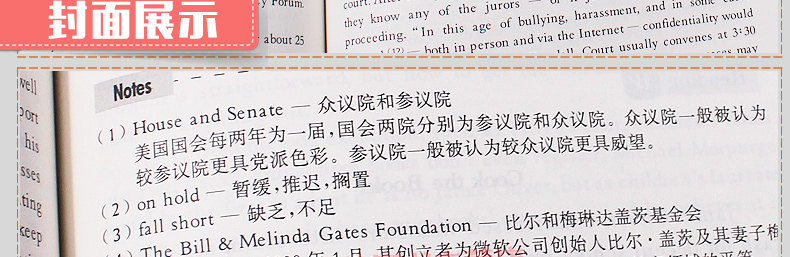 封面展示
y Forum.
about 25
court. After
they know any of the jurors — or
proceeding. "In this age of bullying, harassment, and in some
— both in person and via the Internet — confidentiality would
Court usually convenes at 3:30
may
well
port
his
sses
ting
keep
Notes
(1) House and Senate — 众议院和参议院
美国国会每两年为一届,国会两院分别为参议院和众议院。众议院一般被认为
较参议院更具党派色彩。参议院一般被认为较众议院更具威望。
(2) on hold — 暂缓,推迟,搁置
(3) fall short — 缺乏,不足
(4) The Bill & Melinda Gates Foundation — 比尔和梅琳达盖茨基金会
年1月,其创立者为微软公司创始人比尔·盖茨及其妻子梅